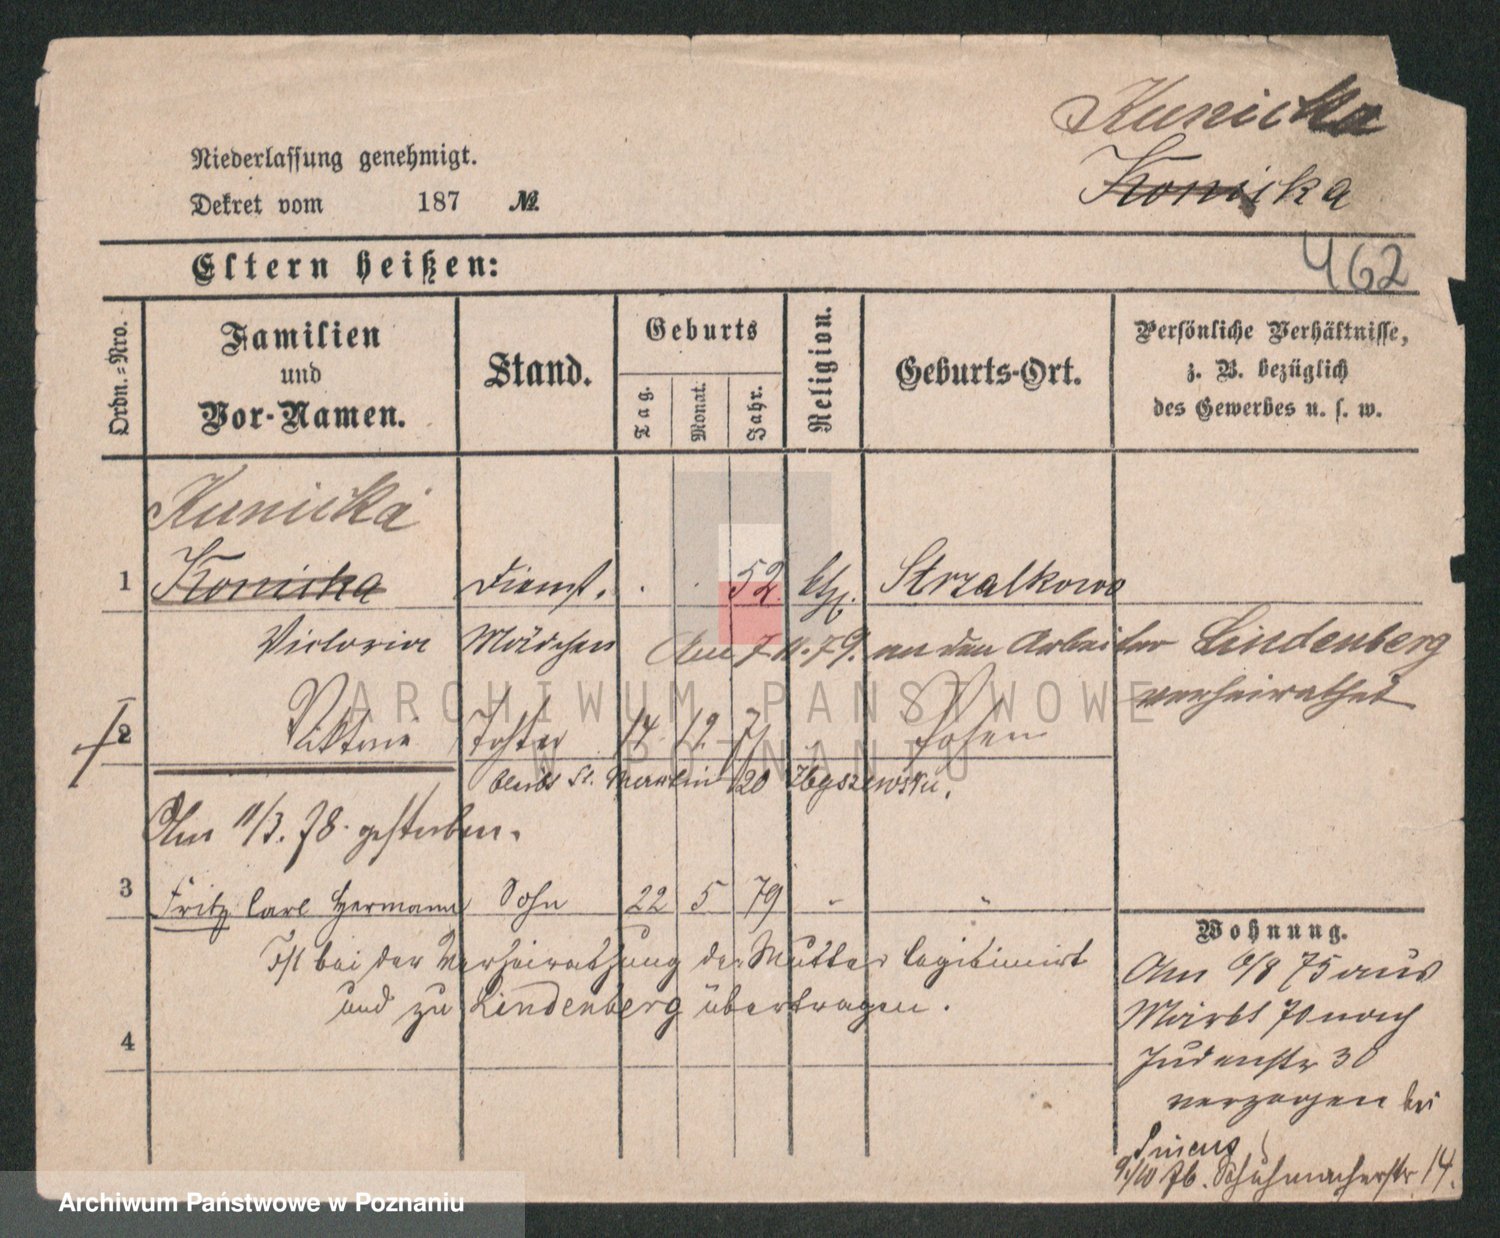 Kunicka
Niederlassung genehmigt.
Konicka
Dekret vom 187 №
Eltern heißen:
462
Ordn.-Nro.
Familien und Vor-Namen.
Stand.
Geburts
Tag.
Monat.
Jahr.
Religion.
Geburts-Ort.
Persönliche Verhältnisse, z. B. bezüglich des Gewerbes u. s. w.
Kunicka
1 Konicka Dienst. 52 kth. Strzalkowo
Victoria Mädchen Am 7 11. 79. an den Arbeiter Lindenberg
verheirathet
ARCHIWUM PAŃSTWOWE
W POZNANIU
2 Viktoria Tochter 14 12 71 Posen
bleibt St. Martin 20
Am 11/3. 78. gestorben.
3 Fritz Carl Hermann Sohn 22 5 79 " "
Ist bei der Verheirathung der Mutter legitimirt
und zu Lindenberg übertragen.
4
Wohnung.
Am 6/8 75 aus
Markt 70 nach
Judenstr 30
verzogen bei
9/10 76. Schuhmacherstr 14.
Archiwum Państwowe w Poznaniu